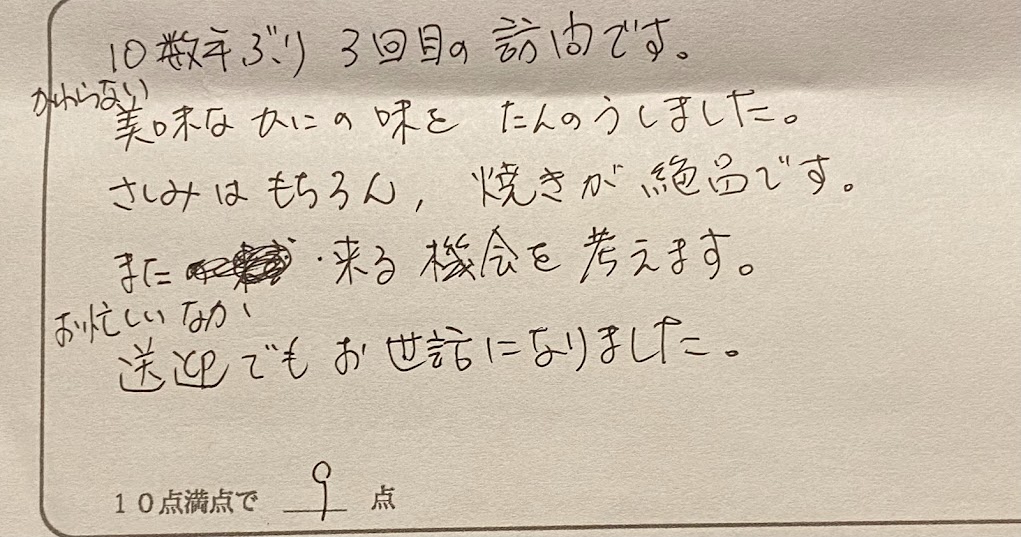 10数年ぶり 3回目の訪問です。
かわらない
美味なかにの味を たんのうしました。
さしみはもちろん, 焼きが絶品です。
また 来る機会を考えます。
お忙しいなか
送迎でもお世話になりました。
10点満点で 9 点